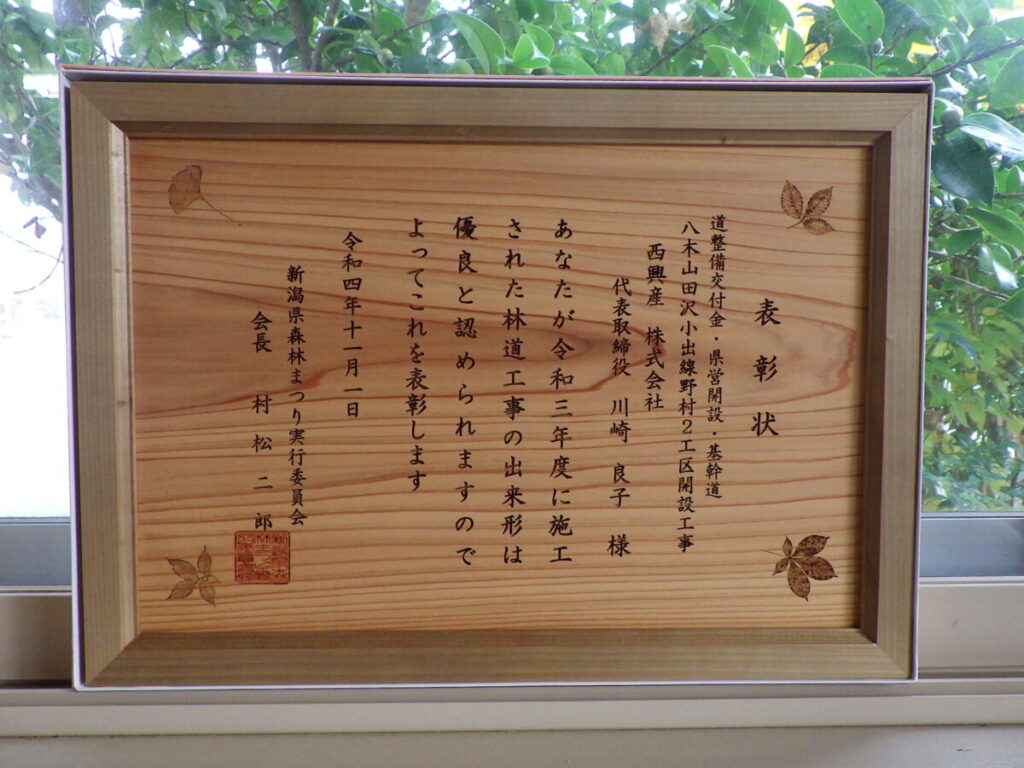 表彰状
道整備交付金・県営開設・基幹道
八木山田沢小出線野村2工区開設工事
西興産 株式会社
代表取締役 川崎 良子 様
あなたが令和三年度に施工
された林道工事の出来形は
優良と認められますので
よってこれを表彰します
令和四年十一月一日
新潟県森林まつり実行委員会
会長 村松二郎